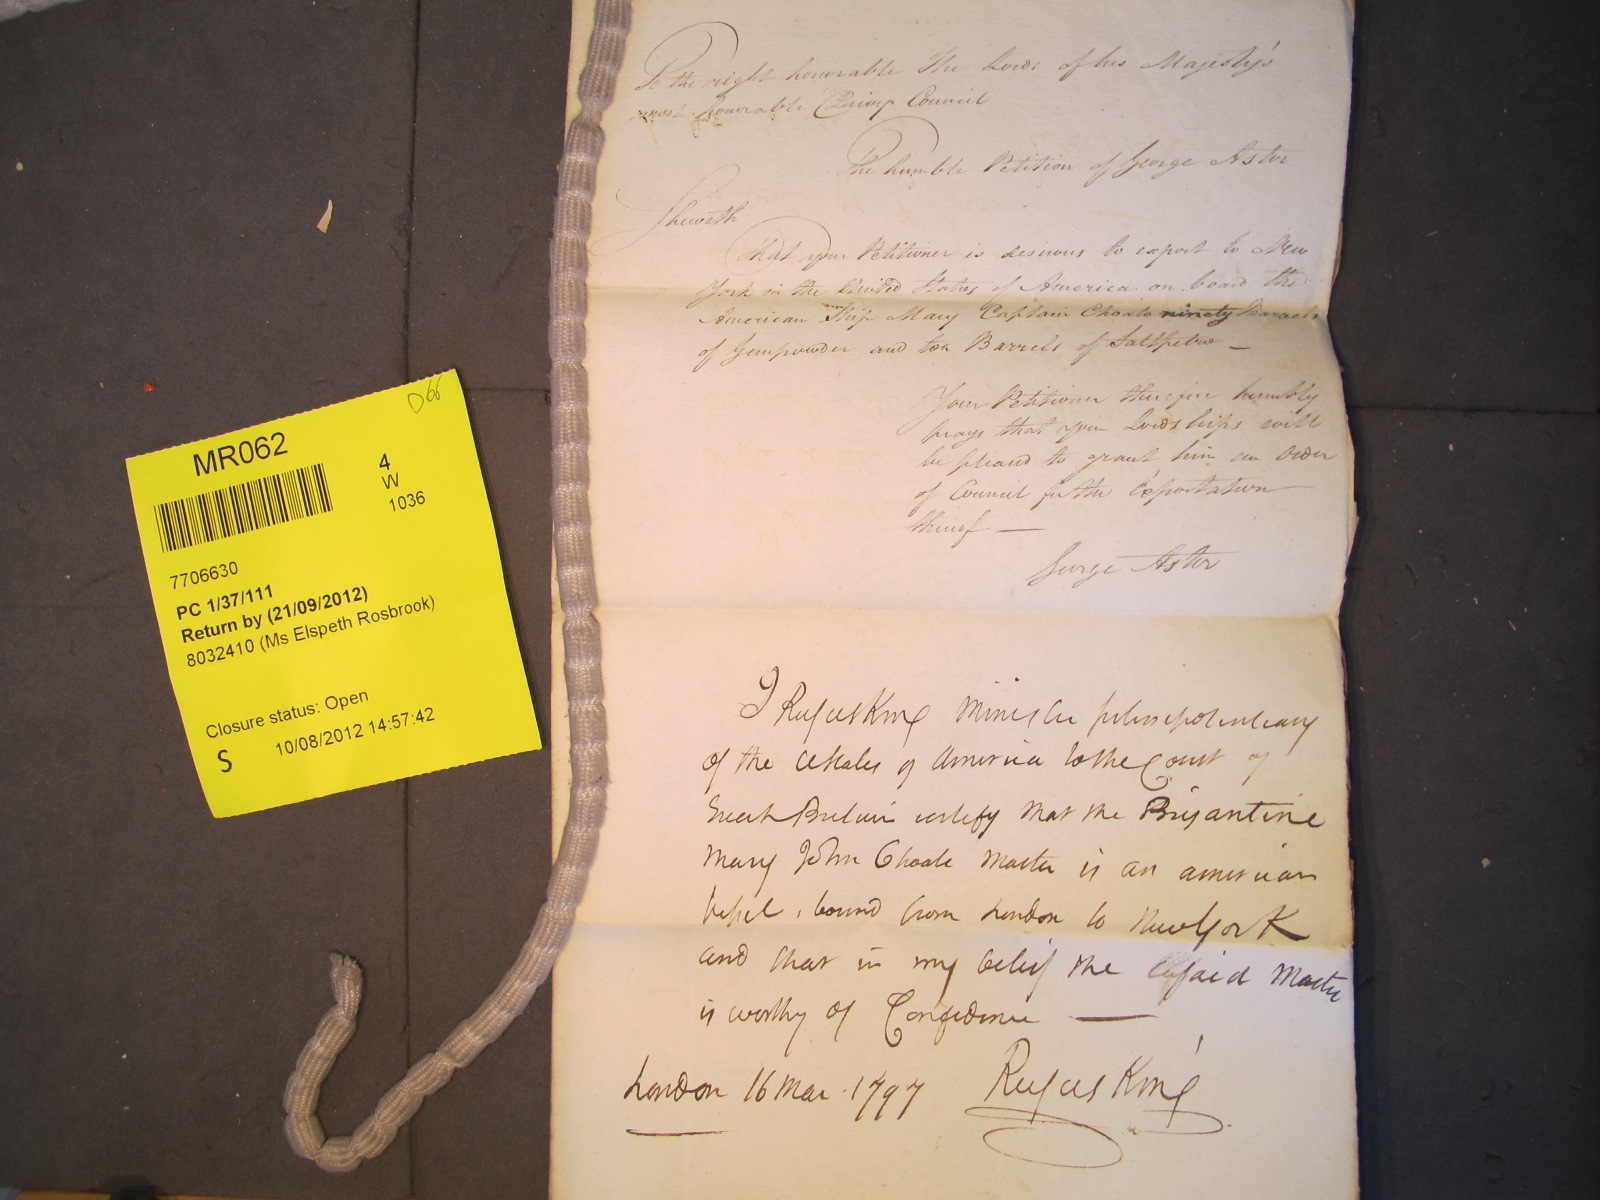 To the right honorable The Lords of his Majesty's
most honorable Privy Council
The humble Petition of George Astor
Sheweth
That your Petitioner is desirous to export to New
York in the United States of America on board the
American Ship Mary Captain Choate ninety Barrels
of Gunpowder and ten Barrels of Saltpetre —
Your Petitioner therefore humbly
prays that your Lordships will
be pleased to grant him an Order
of Council for the Exportation
thereof —
George Astor
I Rufus King Minister plenipotentiary
of the UStates of America to the Court of
Great Britain certify that the Brigantine
Mary John Choate Master is an american
vessel, bound from London to New York
and that in my belief the said Master
is worthy of Confidence —
London 16 Mar. 1797 Rufus King
D66
MR062
4
W
1036
7706630
PC 1/37/111
Return by (21/09/2012)
8032410 (Ms Elspeth Rosbrook)
Closure status: Open
S 10/08/2012 14:57:42